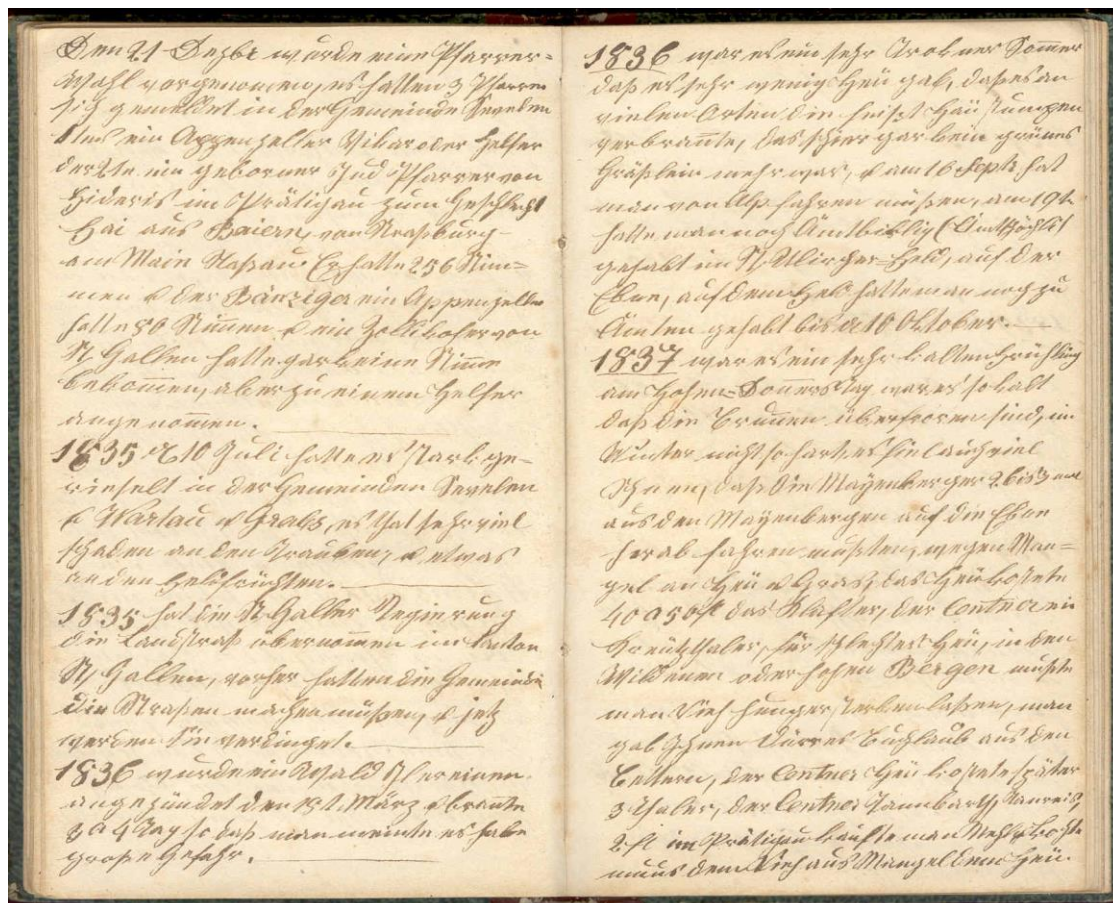 Den 21 Dezbr wurde eine Pfarrer-
Wahl vorgenomen, es hatten 3 Pfarrer
sich gemeldet in der Gemeinde Sevelen
1tens ein Appenzeller Vikar oder Helfer
der 2te ein geborner Jud Pfarrer von
Fideris im Prätigau zum Geschlecht
Hai aus Baiern, von Straßburg
am Main Naßau. Er hatte 256 Stim=
men & der Bänziger ein Appenzeller
hatte 80 Stimen, & ein Zollikofer von
St. Gallen hatte gar keine Stime
bekommen, aber zu einem Helfer
angenommen.
1835 d 10 Juli hatte es stark ge-
rieselt in der Gemeinden Sevelen
& Wartau & Grabs, es that sehr viel
schaden an den Trauben, & etwas
an den Feldfrüchten.
1835 hat die St. Galler Regierung
die Landstraß übernommen im Canton
St. Gallen, vorher hatten die Gemeinde
die Straßen machen müßen, & jetz
werden Sie verdinget.
1836 wurde ein Wald ob einen
angezündet den 1st März & brante
3 a 4 Tag so daß man meinte es habe
große Gefahr.
1836 war es ein sehr Trokner Sommer
daß es sehr wenig Heu gab, daß es an
vielen Orten die Heu stumpen
verbrante, das schier gar kein grünes
Gräßlein mehr war, & am 16 Septb hat
man von Alp fahren müßen, am 19t
hatte man noch
gehabt im St. Ulricher=Feld, auf der
Ebne, auf dem Feld hatte man noch zu
Ämten gehabt bis d 10 Oktober.
1837 war es ein sehr kalten Frühling
am Hohen=Donnerstag war es so kalt
daß die Brunnen überfroren sind, im
Winter nicht so hart es fiel auch viel
Schnee, daß die Mayenberger 2 bis 3 mal
aus den Mayenbergen auf die Ebne
herab fahren mußten, wegen Man=
gel an Heu & Graß, das Heu kostete
40 a 50 fl das Klafter, der Centner ein
Kreutzthaler, für schlechtes Heu, in den
Wildenen oder hohen Bergen mußte
man Vieh hunger sterben laßen, man
gab Ihnen dürres Buchlaub aus den
Bettern, der Centner Heu kostete später
3 Thaler, der Centner Tannbarth, Tanreis,
2 fl im Prätigau kaufte man Mehl & kochte
muus dem Vieh aus Mangel dem Heu.